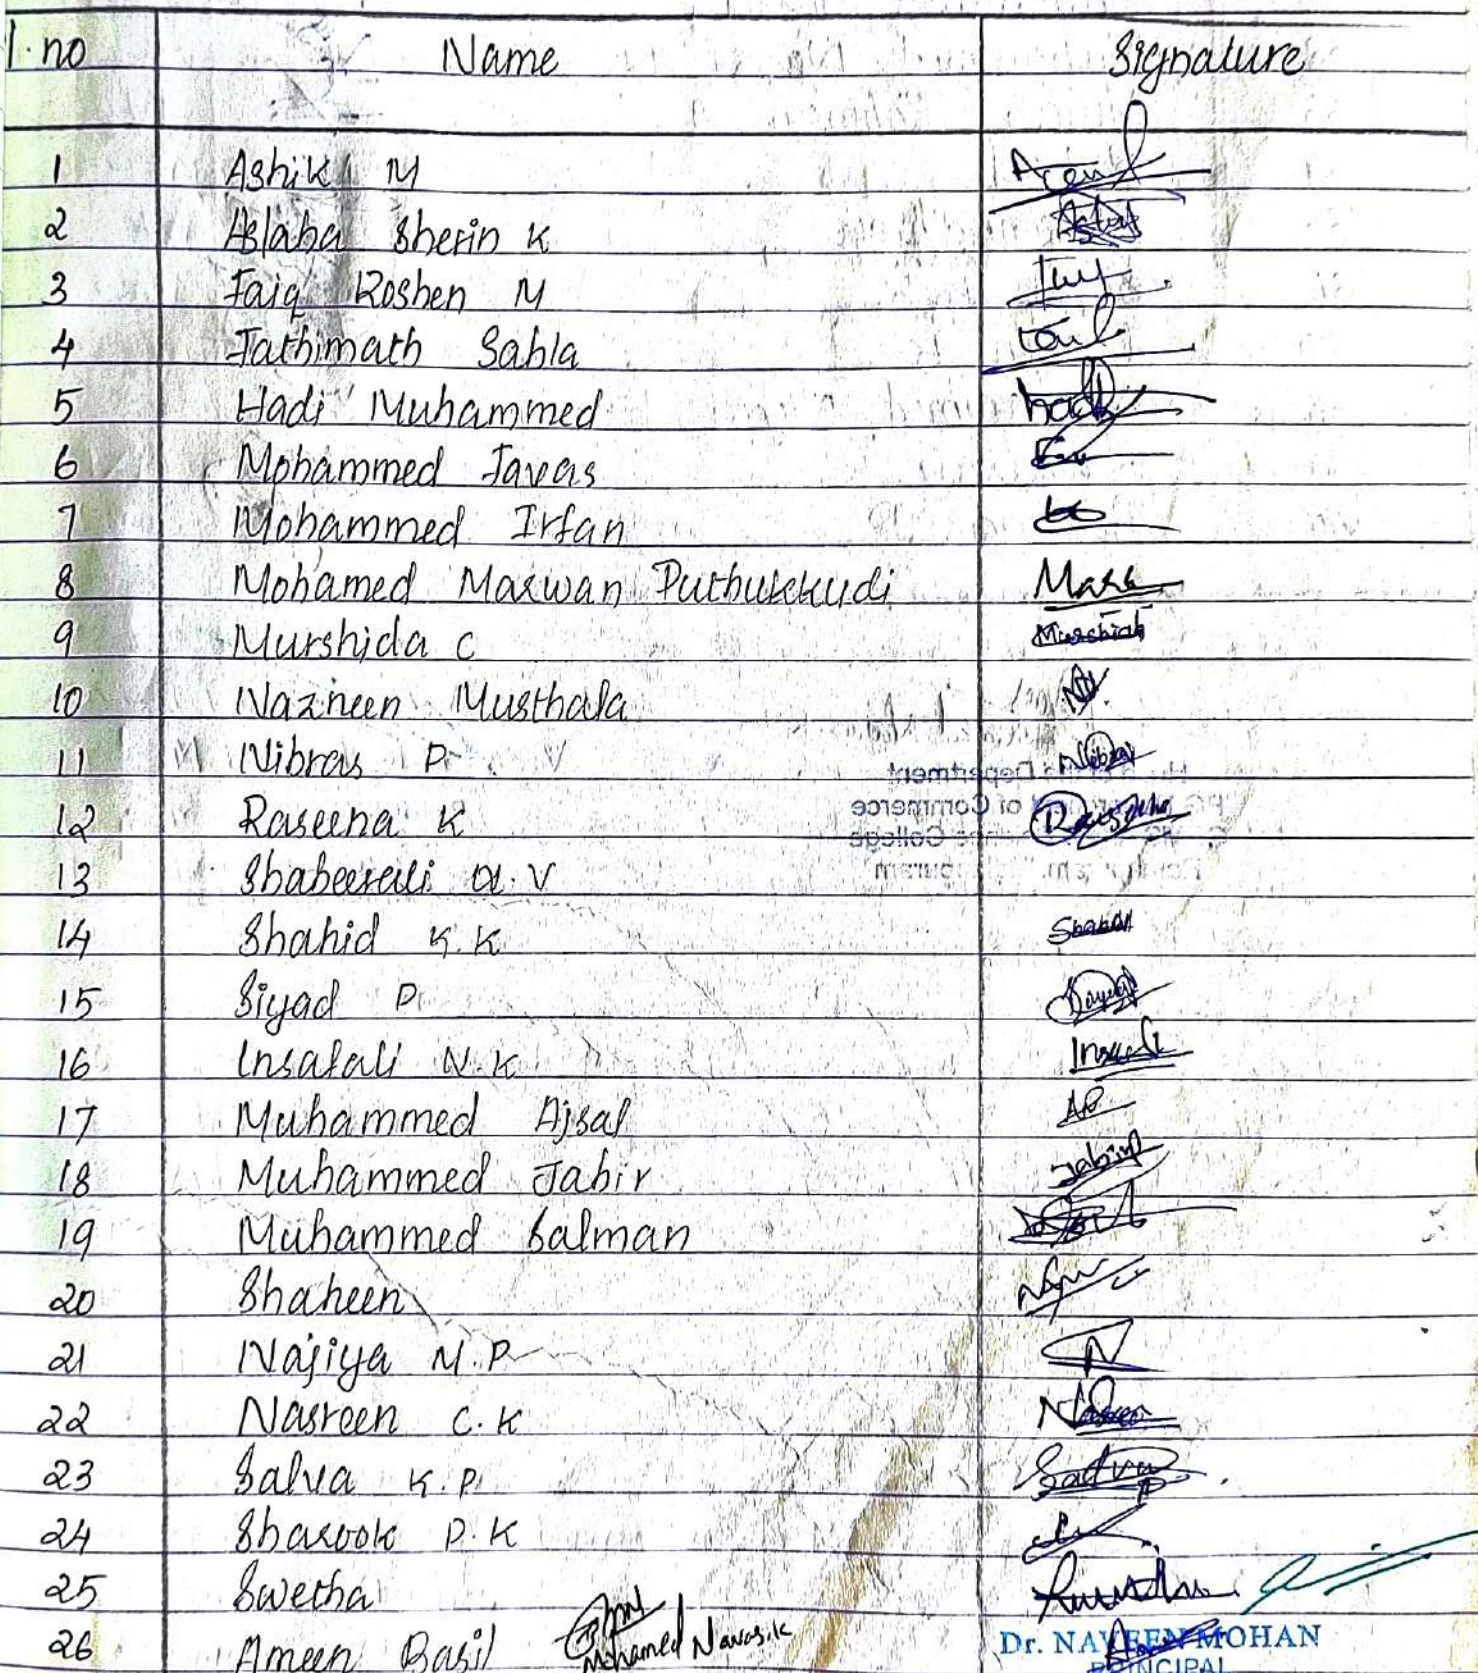 l.no Name Signature
1 Ashik M
2 Aslaha Sherin K
3 Faiq Roshen M
4 Fathimath Sahla
5 Hadi Muhammed hadi
6 Mohammed Favas
7 Mohammed Irfan
8 Mohamed Marwan Puthukkudi
9 Murshida C
10 Nazneen Musthafa
11 Nibras P Nibras
12 Raseena K
13 Shabeerali V
14 Shahid K.K Shahid
15 Siyad P
16 Insafali N.K
17 Muhammed Ajsal
18 Muhammed Jabir Jabir
19 Muhammed Salman
20 Shaheen
21 Najiya M.P
22 Nasreen C.K
23 Salva K.P
24 Sharook P.K
25 Swetha
26 Ameen Basil
Mohamed Navas.k
Dr. NAVEEN MOHAN
PRINCIPAL
Department
of Commerce
College